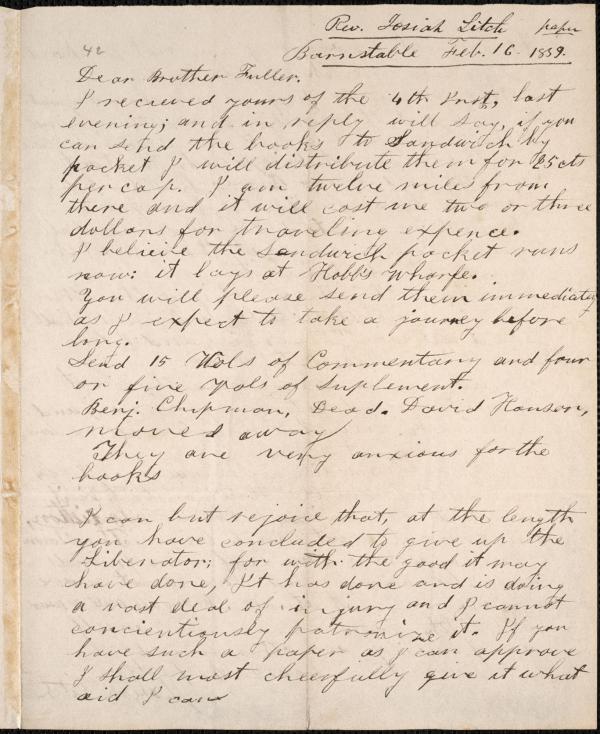 Rev. Josiah Litch paper
42
Barnstable Feb. 16 1839.
Dear Brother Fuller.
I recieved yours of the 4th Inst, last
evening; and in reply will say, if you
can send the books to Sandwich by
packet I will distribute them for 25 cts
per cop. I am twelve miles from
there and it will cost me two or three
dollars for traveling expence.
I believe the Sandwich packet runs
now: it lays at Hobb's Wharfe.
You will please send them immediatly
as I expect to take a journey before
long.
Send 15 Vols of Commentary and four
or five Vols of Suplement.
Benj. Chipman, Dead. David Hanson,
moved away
They are very anxious for the
books
I can but rejoice that, at the length
you have concluded to give up the
Liberator; for with the good it may
have done, It has done and is doing
a vast deal of injury and I cannot
concientiously patronize it. If you
have such a paper as I can approve
I shall most cheerfully give it what
aid I can